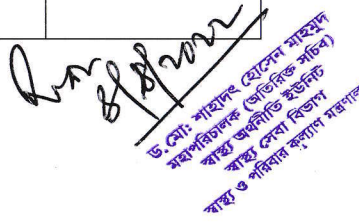 8/8/2022
ড. মো: শাহাদৎ হোসেন মাহমুদ
মহাপরিচালক (অতিরিক্ত সচিব)
স্বাস্থ্য অর্থনীতি ইউনিট
স্বাস্থ্য সেবা বিভাগ
স্বাস্থ্য ও পরিবার কল্যাণ মন্ত্রণাল